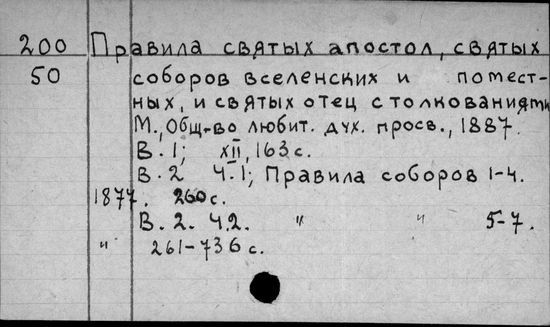 200 Правила святых апостол, святых
50 соборов вселенских и помест-
ных, и святых отец с толкованиями
М., Общ-во любит. дух. просв., 1887.
В. 1; XII, 163 с.
В. 2 Ч. 1; Правила соборов 1-4.
1877. 260 с.
В. 2. Ч. 2. " " 5-7.
" 261-736 с.